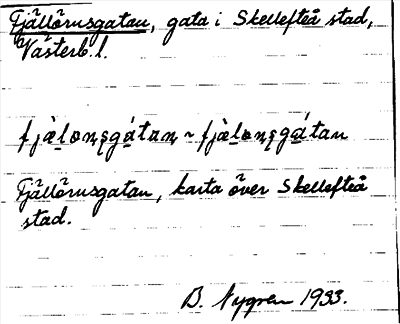 Fjällörnsgatan, gata i Skellefteå stad,
Västerb. l.
fjàlo̱ṇṣgátaṇ ~ fjàlo̱ṇṣgátan
Fjällörnsgatan, karta över Skellefteå
stad.
B. Nygren 1933.